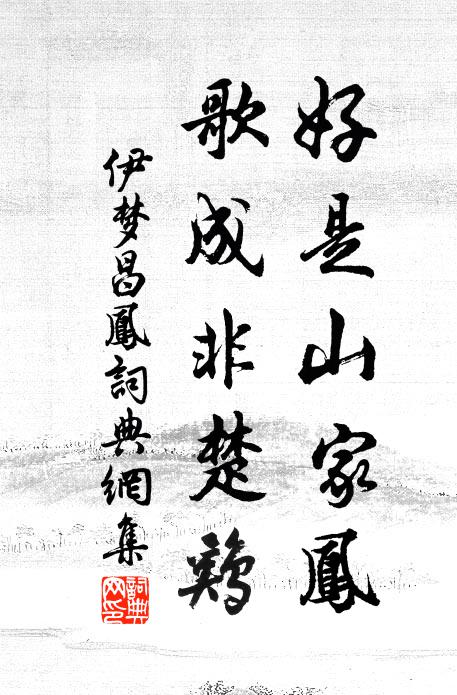 好是山家鳳
歌成非楚鷄
伊梦昌鳳詞典網集
詞典网印